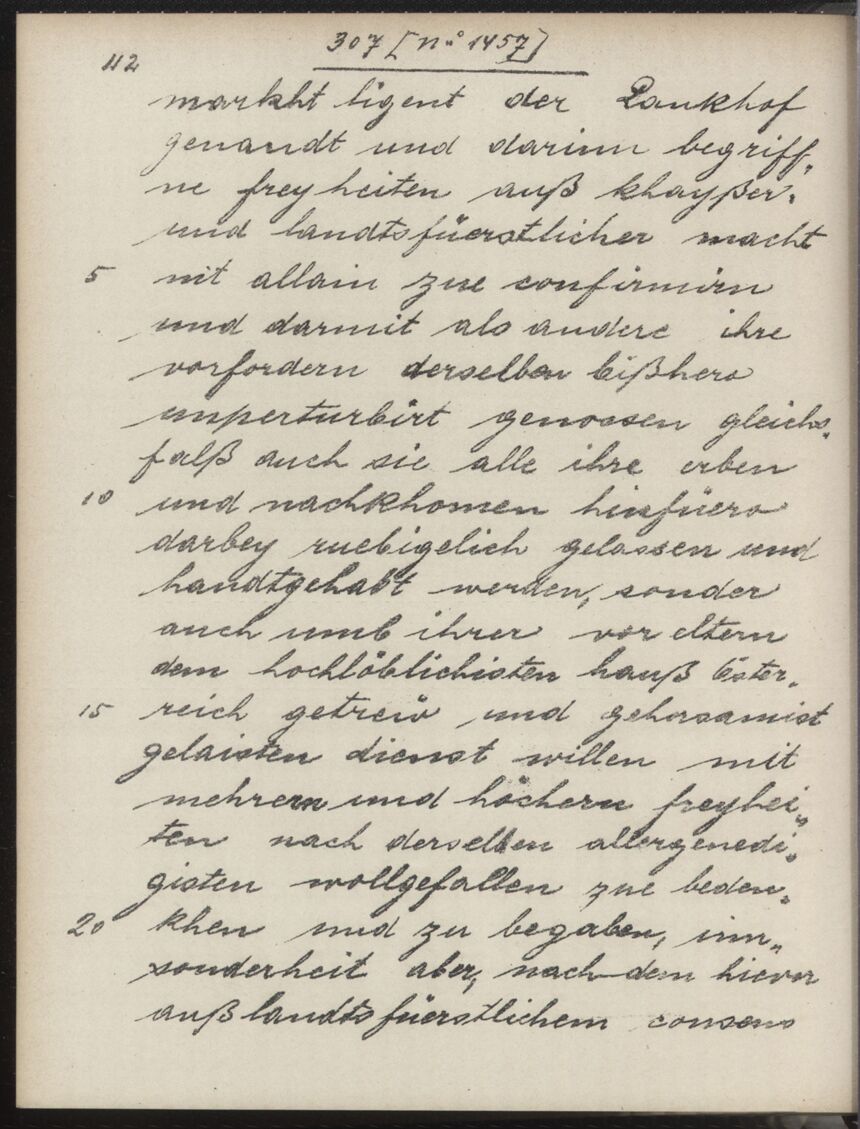 307 [No 1457]
42
markht ligent der Lankhof
genandt und darinn begriff„
ne freyheiten auß khayßer„
und landtsfüerstlicher macht
5 nit allain zue confirmirn
und darmit als andere ihre
vorfordern derselben bißhero
unperturbirt genossen gleichs„
falß auch sie alle ihre erben
10 und nachkhomen hinfüero
darbey ruebigelich gelassen und
handtgehabt werden, sonder
auch umb ihrer vor eltern
dem hochlöblichisten hauß Öster„
15 reich getreiv und gehorsamist
gelaisten dienst willen mit
mehrern und höchern freyhei„
ten nach derselben allergenedi„
gisten wollgefallen zue beden„
20 khen und zu begaben, inn„
sonderheit aber, nach dem hievor
auß landtsfüerstlichem consens